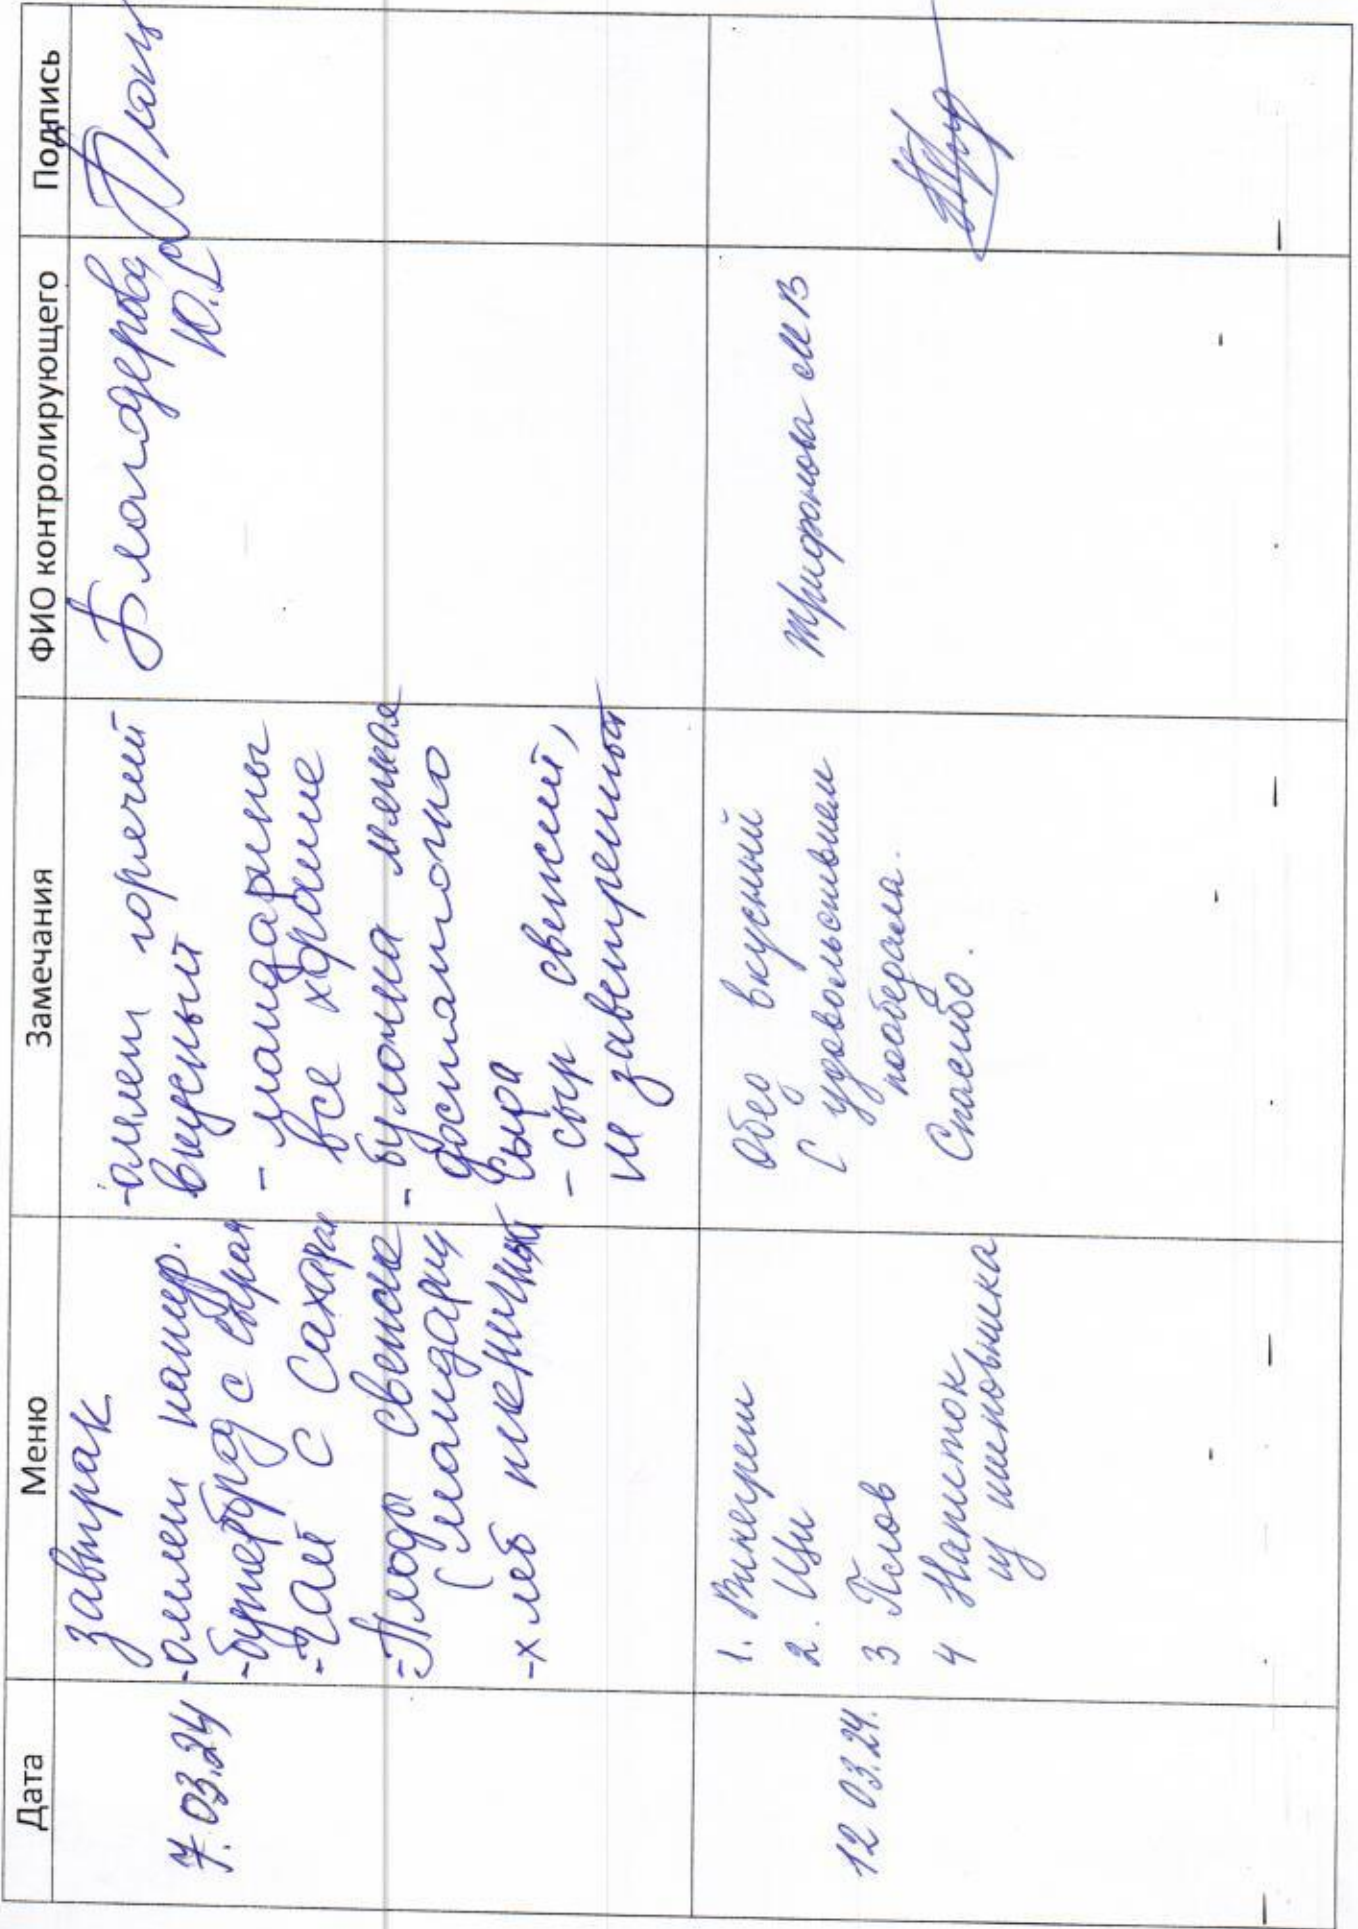 Дата Меню Замечания ФИО контролирующего Подпись
7.03.24
завтрак
-омлет натур.
-бутерброд с сыром
-чай с сахаром
-Плоды свежие
(мандарин
-хлеб пшеничный
-омлет горячий
вкусный
- мандарины
все хорошие
- булочка мягкая
достаточно
сыра
- сыр свежий,
не заветренный
Благодерова
Ю.С
12 03.24.
1. Винегрет
2. Щи
3 Плов
4 Напиток
из шиповника
Обед вкусный
С удовольствием
пообедала.
Спасибо.
Трифонова М В